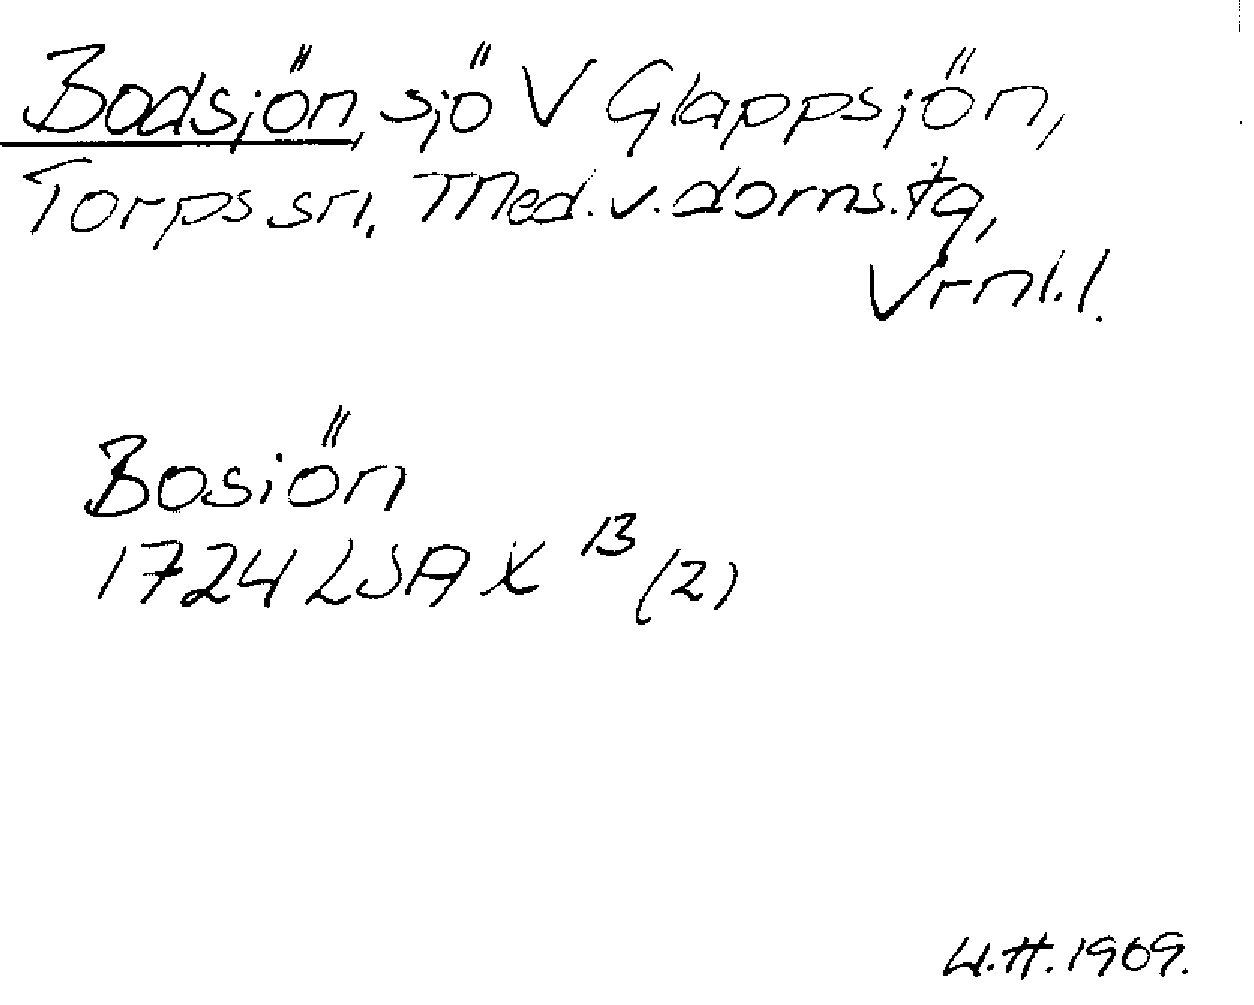 Bodsjön, sjö V Glappsjön,
Torps sn, Med.v.doms.tg,
Vrnl.l.
Bosiön
1724 LSA X 13 (2)
W.H. 1909.